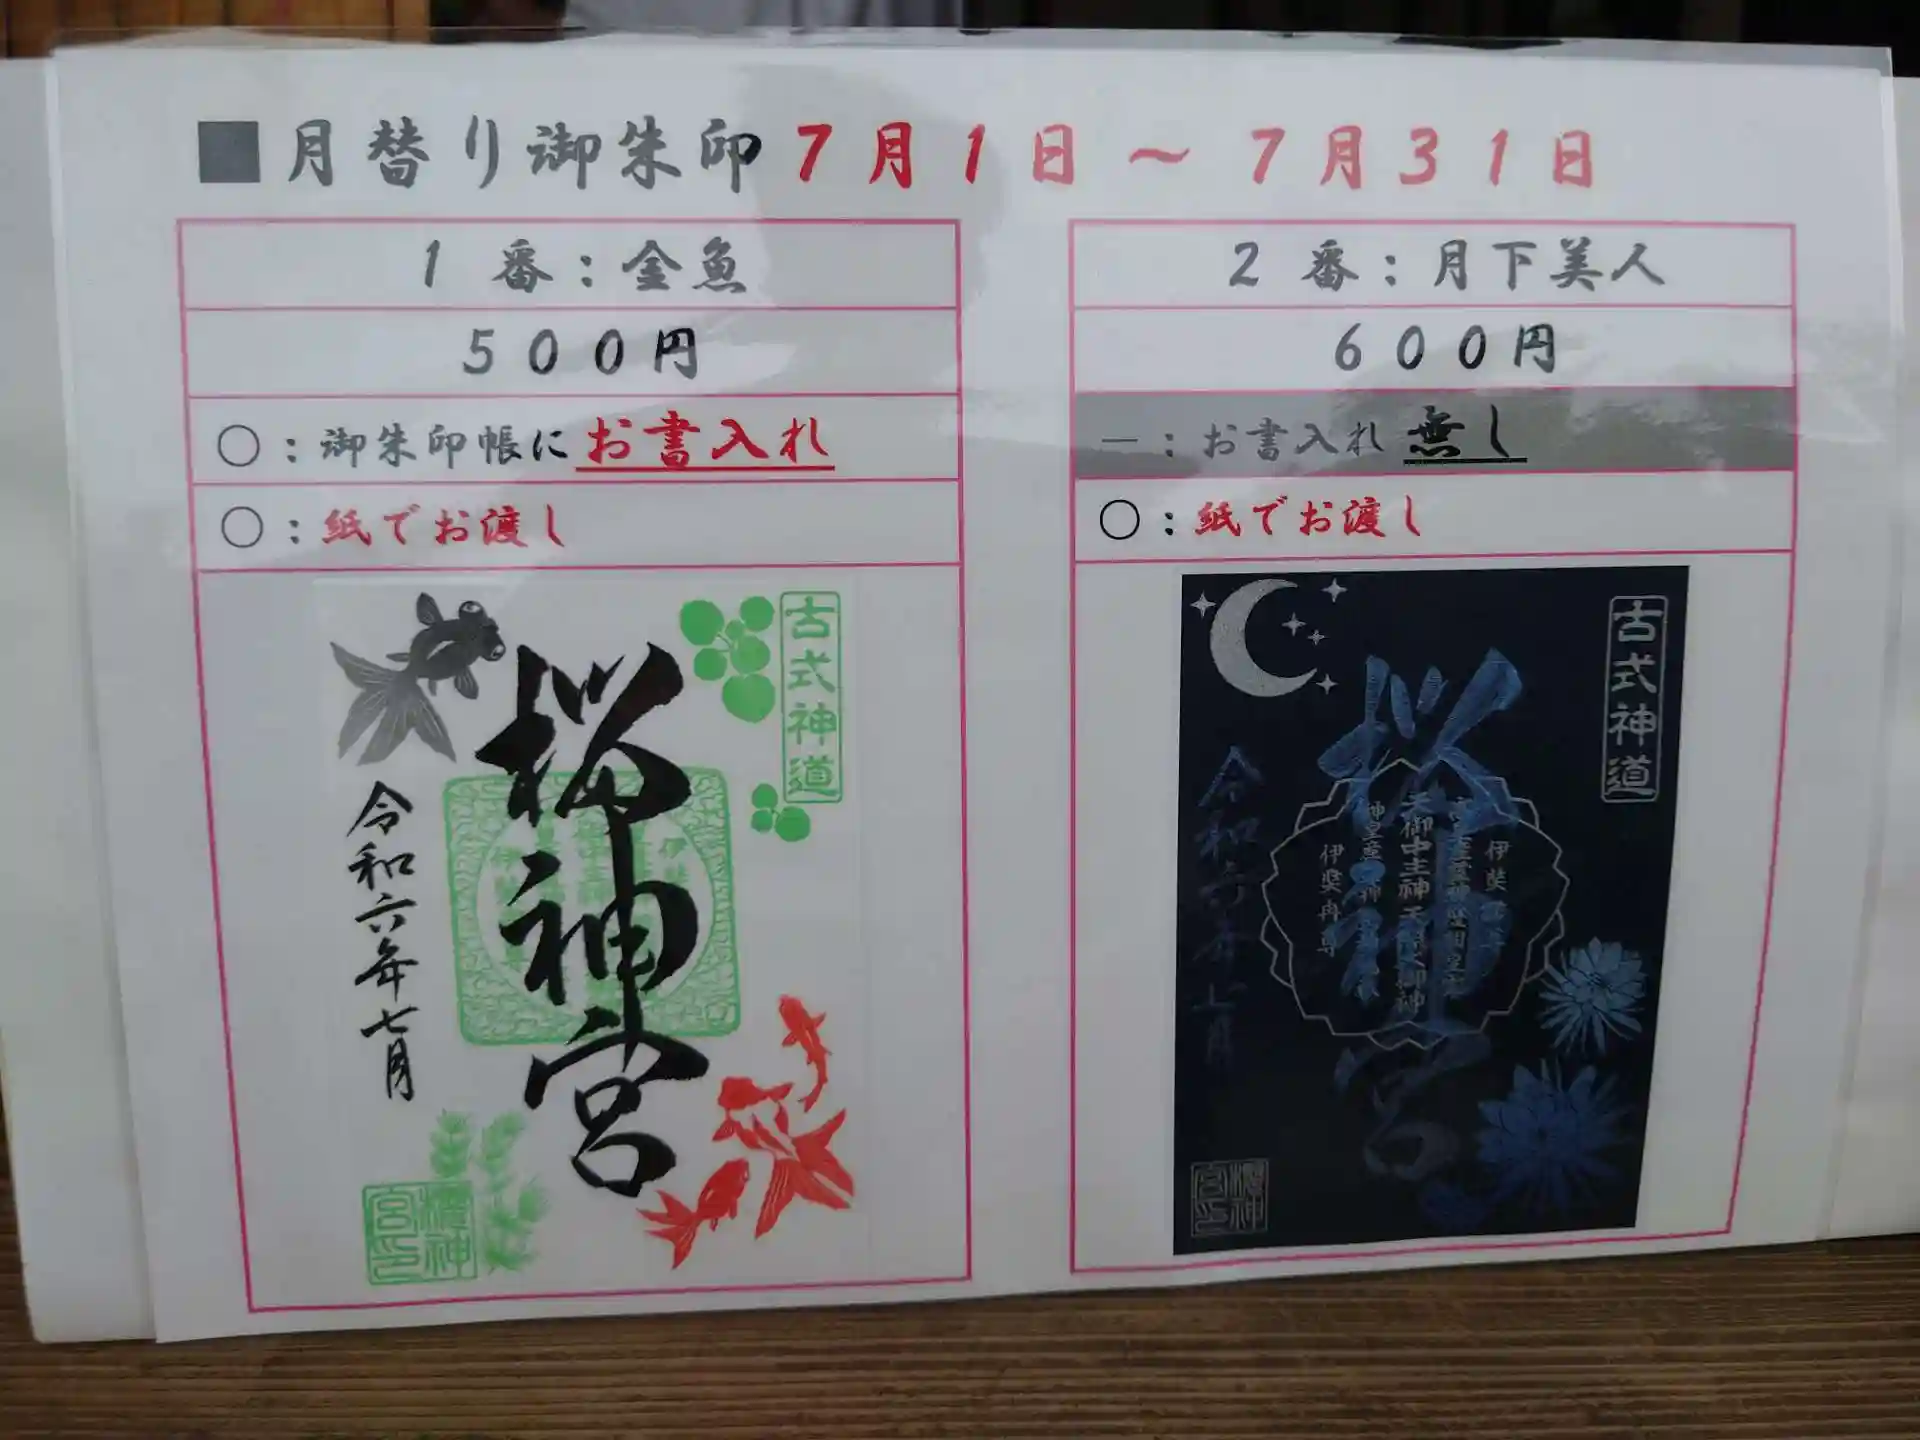 ■月替り御朱印7月1日～7月31日
1 番：金魚
500円
○：御朱印帳にお書入れ
○：紙でお渡し
古式神道
桜神宮
令和六年七月
櫻神宮印
2 番：月下美人
600円
－：お書入れ 無し
○：紙でお渡し
古式神道
桜神宮
伊弉
天御中主神天照大御神
神皇産
伊弉冉尊
令和六年七月
櫻神宮印